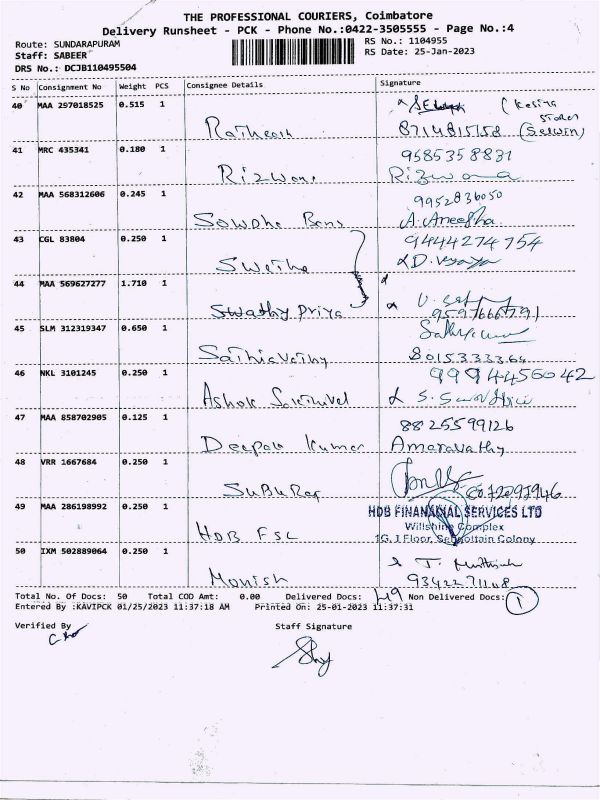 THE PROFESSIONAL COURIERS, Coimbatore
Delivery Runsheet - PCK - Phone No.:0422-3505555 - Page No.:4
Route: SUNDARAPURAM
RS No.: 1104955
Staff: SABEER
RS Date: 25-Jan-2023
DRS No.: DCJB110495504
S No Consignment No Weight PCS Consignee Details Signature
40 MAA 297018525 0.515 1
(Selwin)
41 MRC 435341 0.180 1 9585358831
Rizwana Rizwana
42 MAA 568312606 0.245 1 9952836050
Sowdha Banu A. Aneesha
43 CGL 83804 0.250 1 9444274754
Swetha
44 MAA 569627277 1.710 1
Swathy Priya
45 SLM 312319347 0.650 1
8015333364
46 NKL 3101245 0.250 1 9994456042
Ashok
47 MAA 858702905 0.125 1 8825599126
Deepak Kumar Amaravathy
48 VRR 1667684 0.250 1
49 MAA 286198992 0.250 1 HDB FINANACIAL SERVICES LTD
HDB FSL Willshine Complex
1G, I Floor, Sengottain Colony
50 IXM 502889064 0.250 1
Monish
Total No. Of Docs: 50 Total COD Amt: 0.00 Delivered Docs: 49 Non Delivered Docs: 1
Entered By :KAVIPCK 01/25/2023 11:37:18 AM Printed On: 25-01-2023 11:37:31
Verified By Staff Signature